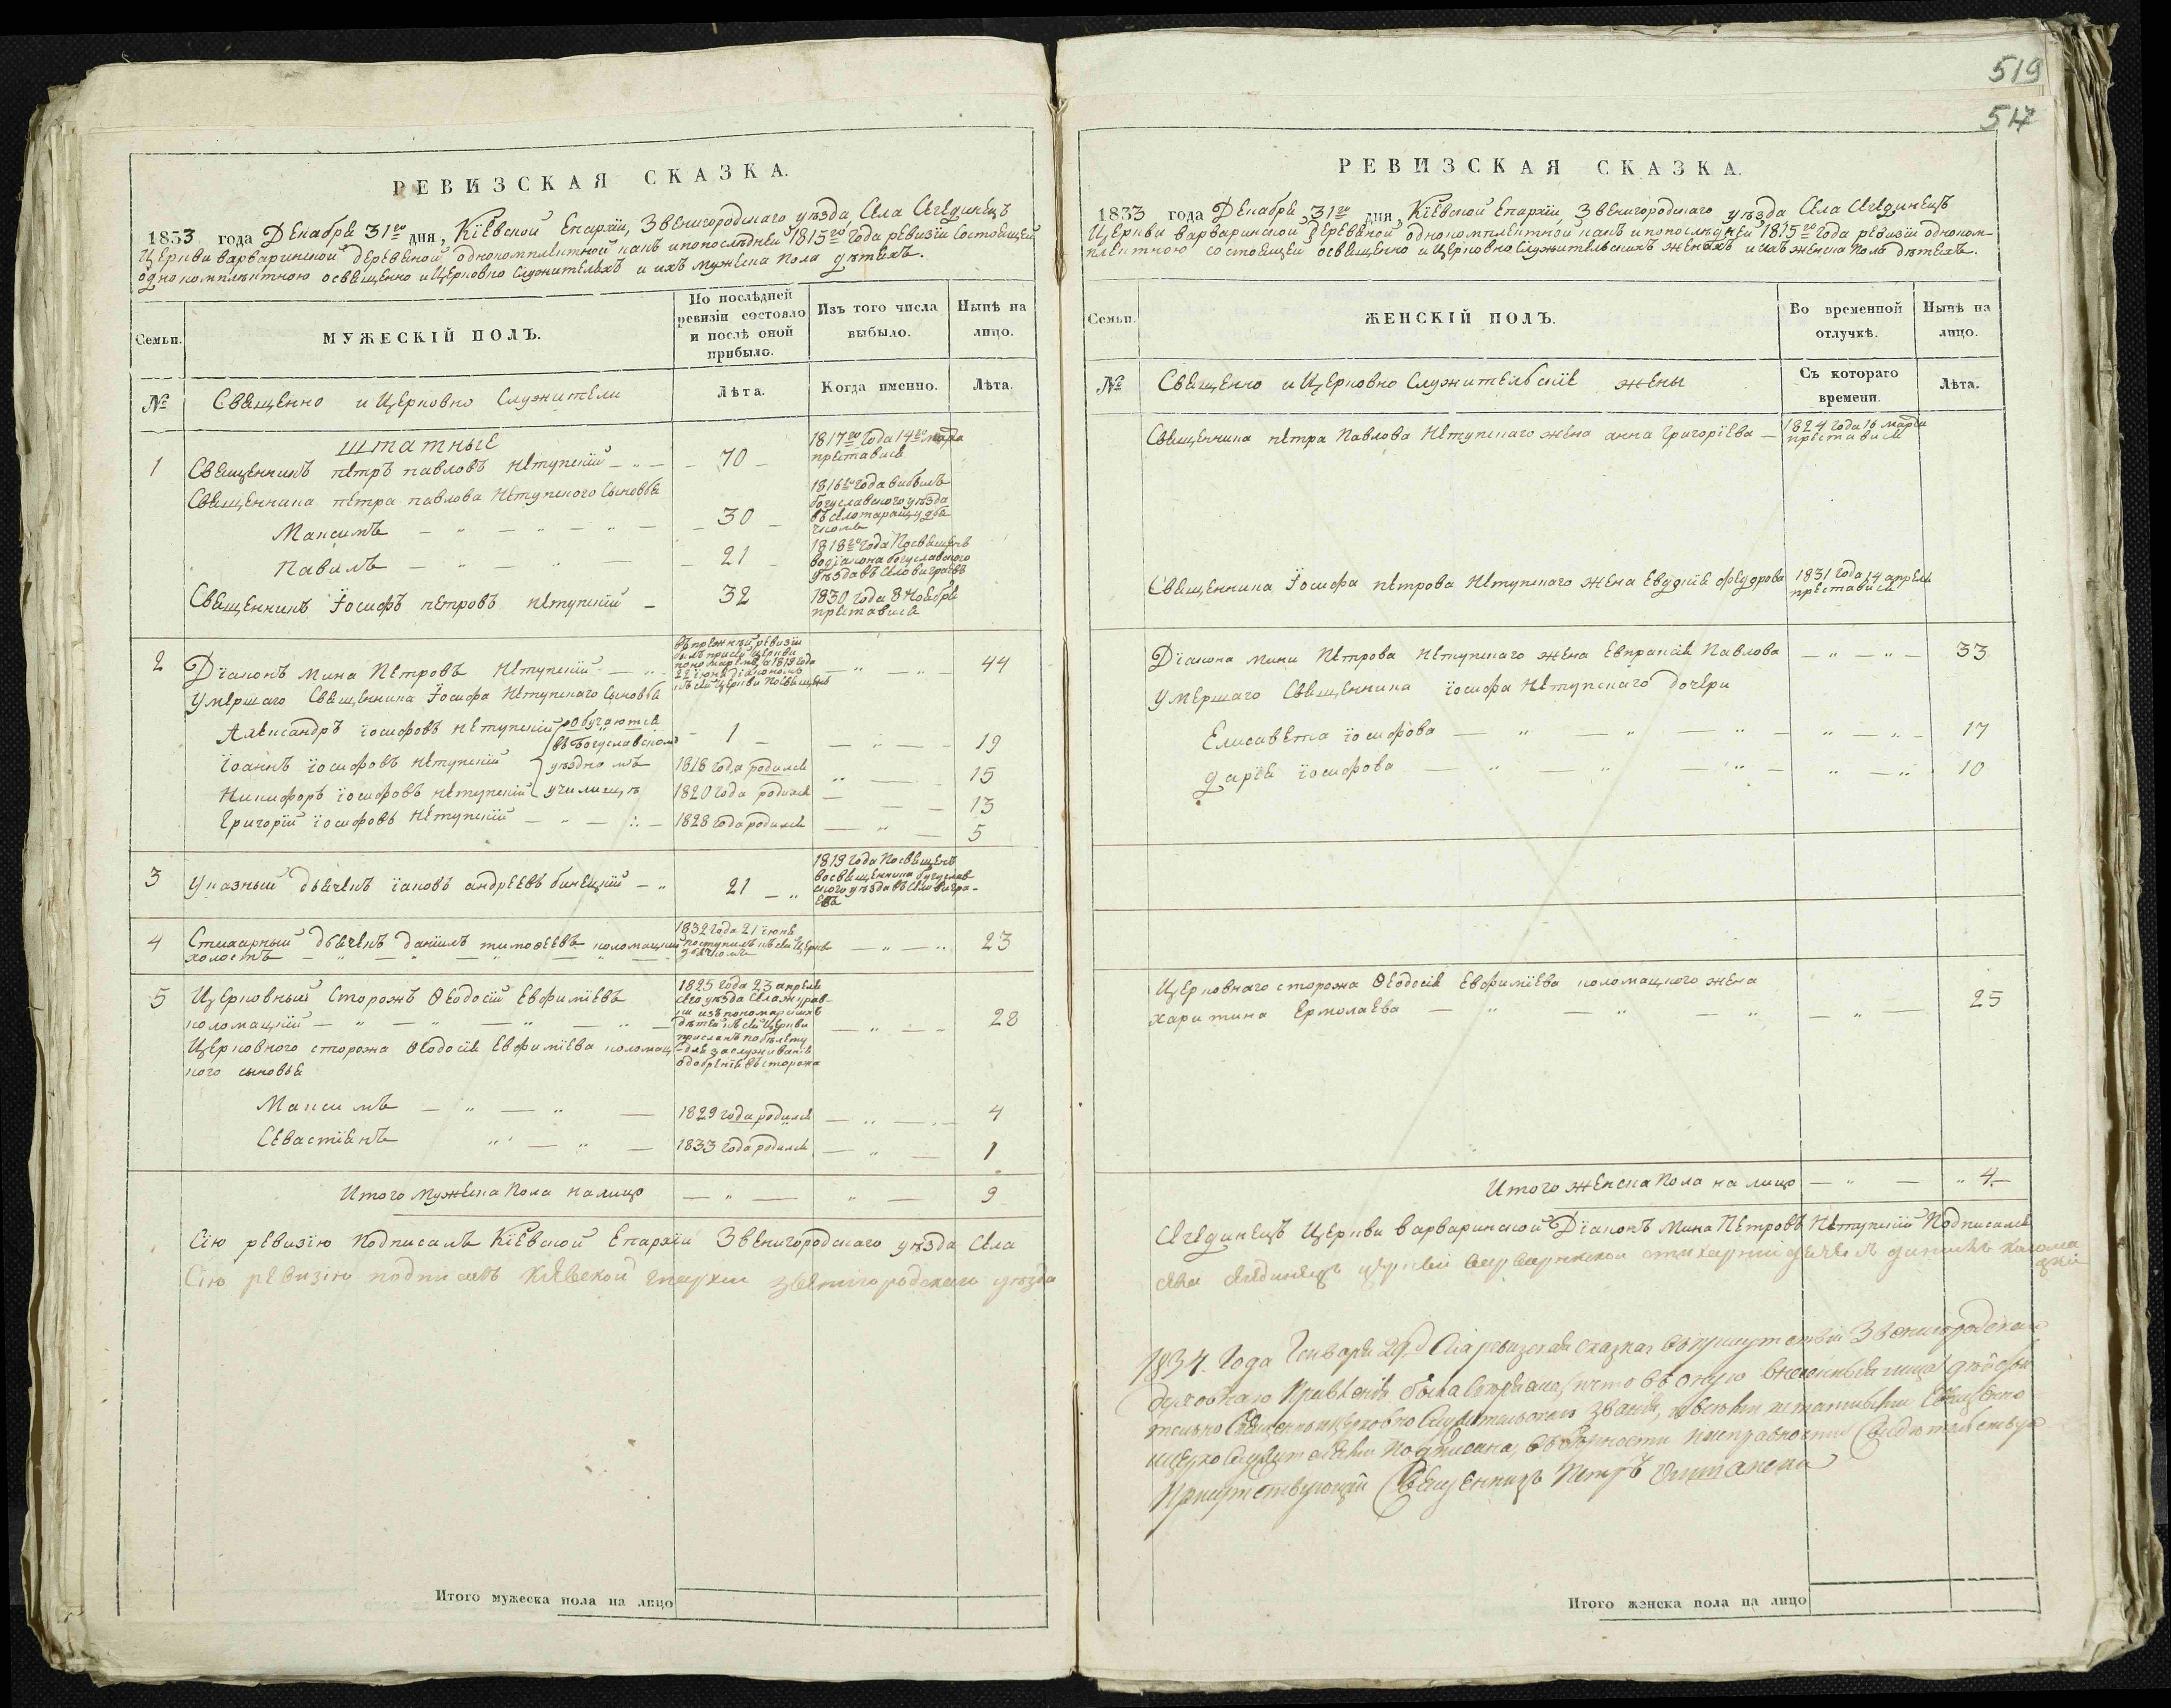 РЕВИЗСКАЯ СКАЗКА.
1833 года Декабря 31го дня, Кіевской Епархіи, Звенигородскаго уѣзда Села Ягединецъ
Церкви варваринской деревяной однокомплектной какъ и по последней 1815го года ревизіи состоящей
однокомплѣктною о священно и Церковно служителяхъ и ихъ мужеска пола дѣтяхъ.
Семьи.
МУЖЕСКІЙ ПОЛЪ.
По послѣдней ревизіи состояло и послѣ оной прибыло.
Изъ того числа выбыло.
Нынѣ на лицо.
№
Священно и Церковно Служители
Лѣта.
Когда именно.
Лѣта.
штатные
1 Священникъ петръ павловъ Нетупскій 70 1817го года 14го марта преставися
Священника петра павлова Нетупского Сыновья
Максимъ 30 1816го года вибылъ богуславского уѣзда въ село таращу дьячкомъ
Павилъ 21 1818го года Посвященъ во діакона богуславского уѣзда въ село виграевъ
Священникъ Іосифъ петровъ нетупскій 32 1830 года 8 Ноября преставися
2 Діаконъ Мина Петровъ Нетупскій въ прежней ревизіи былъ при сей церкви пономаремъ, а 1819 года 22 іюня діакономъ къ сей церкви посвященъ 44
Умершаго Священника Іосифа Нетупскаго Сыновья
Александръ іосифовъ Нетупскій обучаются 1 19
въ Богуславскомъ
Іоаннъ іосифовъ Нетупскій уѣздномъ 1818 года родился 15
Никифоръ іосифовъ нетупскій училищѣ 1820 года родился 13
Григорій іосифовъ Нетупскій 1828 года родился 5
3 Указный дьячекъ іаковъ андреевъ бинецкій 21 1819 года Посвященъ во священника богуславского уѣзда въ село виграевъ
4 Стихарный дьячекъ даніилъ тимофеевъ коломацкій 1832 года 21 іюня поступилъ къ сей Церкве дьячкомъ 23
холостъ
5 Церковный Сторожъ Ѳеодосій Евфиміевъ коломацкій 1825 года 23 апреля сего уѣзда села журавки изъ пономарскихъ дѣтей къ сей Церкви присланъ по билету для заслуживанія одобренія въ сторожа 28
Церковного сторожа Ѳеодосія Евфиміева коломацкого сыновья
Максимъ 1829 года родился 4
Севастіянъ 1833 года родился 1
Итого Мужеска Пола на лицо 9
Сію ревизію Подписалъ Кіевской Епархіи Звенигородскаго уѣзда Села
Сію ревизію подписавъ Кіевской епархіи звенигородскаго уезда
Итого мужеска пола на лицо
519
517
РЕВИЗСКАЯ СКАЗКА.
1833 года Декабря 31го дня, Кіевской Епархіи, Звенигородскаго уѣзда Села Ягединецъ
Церкви варваринской деревяной однокомплектной какъ и по последней 1815го года ревизіи одноком-
плектною состоящей о священно и Церковно Служительскихъ женахъ и ихъ женска пола дѣтяхъ.
Семьи.
ЖЕНСКІЙ ПОЛЪ.
Во временной отлучкѣ.
Нынѣ на лицо.
№
Священно и Церковно Служительскіе жены
Съ котораго времени.
Лѣта.
Священника петра Павлова Нетупскаго жена анна Григоріева 1824 года 16 марта преставися
Священника Іосифа петрова Нетупскаго жена Евудкія федорова 1831 года 14 апреля преставися
Діакона Мини Петрова Нетупскаго жена Евпраксія Павлова 33
Умершаго Священника іосифа Нетупскаго дочери
Елисавета іосифова 17
дарія іосифова 10
Церковнаго сторожа Ѳеодосія Евфиміева коломацкого жена
харитина Ермолаева 25
Итого женска Пола на лицо 4
Ягединецъ Церкви варваринской Діаконъ Мина Петровъ Нетупскій Подписался
села Ягединецъ церкви варваринской стихарній дячекъ даніилъ коломацкій
1834 Года Генваря 29 Сія ревизская сказка въ присутствіи Звенигородскаго
Духовнаго Правленія была и что въ оную внесенныя лица дѣйстви
тельно Священно и церковно Служительского званія, и всеми штатными Священно
и церко служителями подписана, въ верности и исправности Свидетельствую
Присутствующій Священникъ Петръ
Итого женска пола на лицо